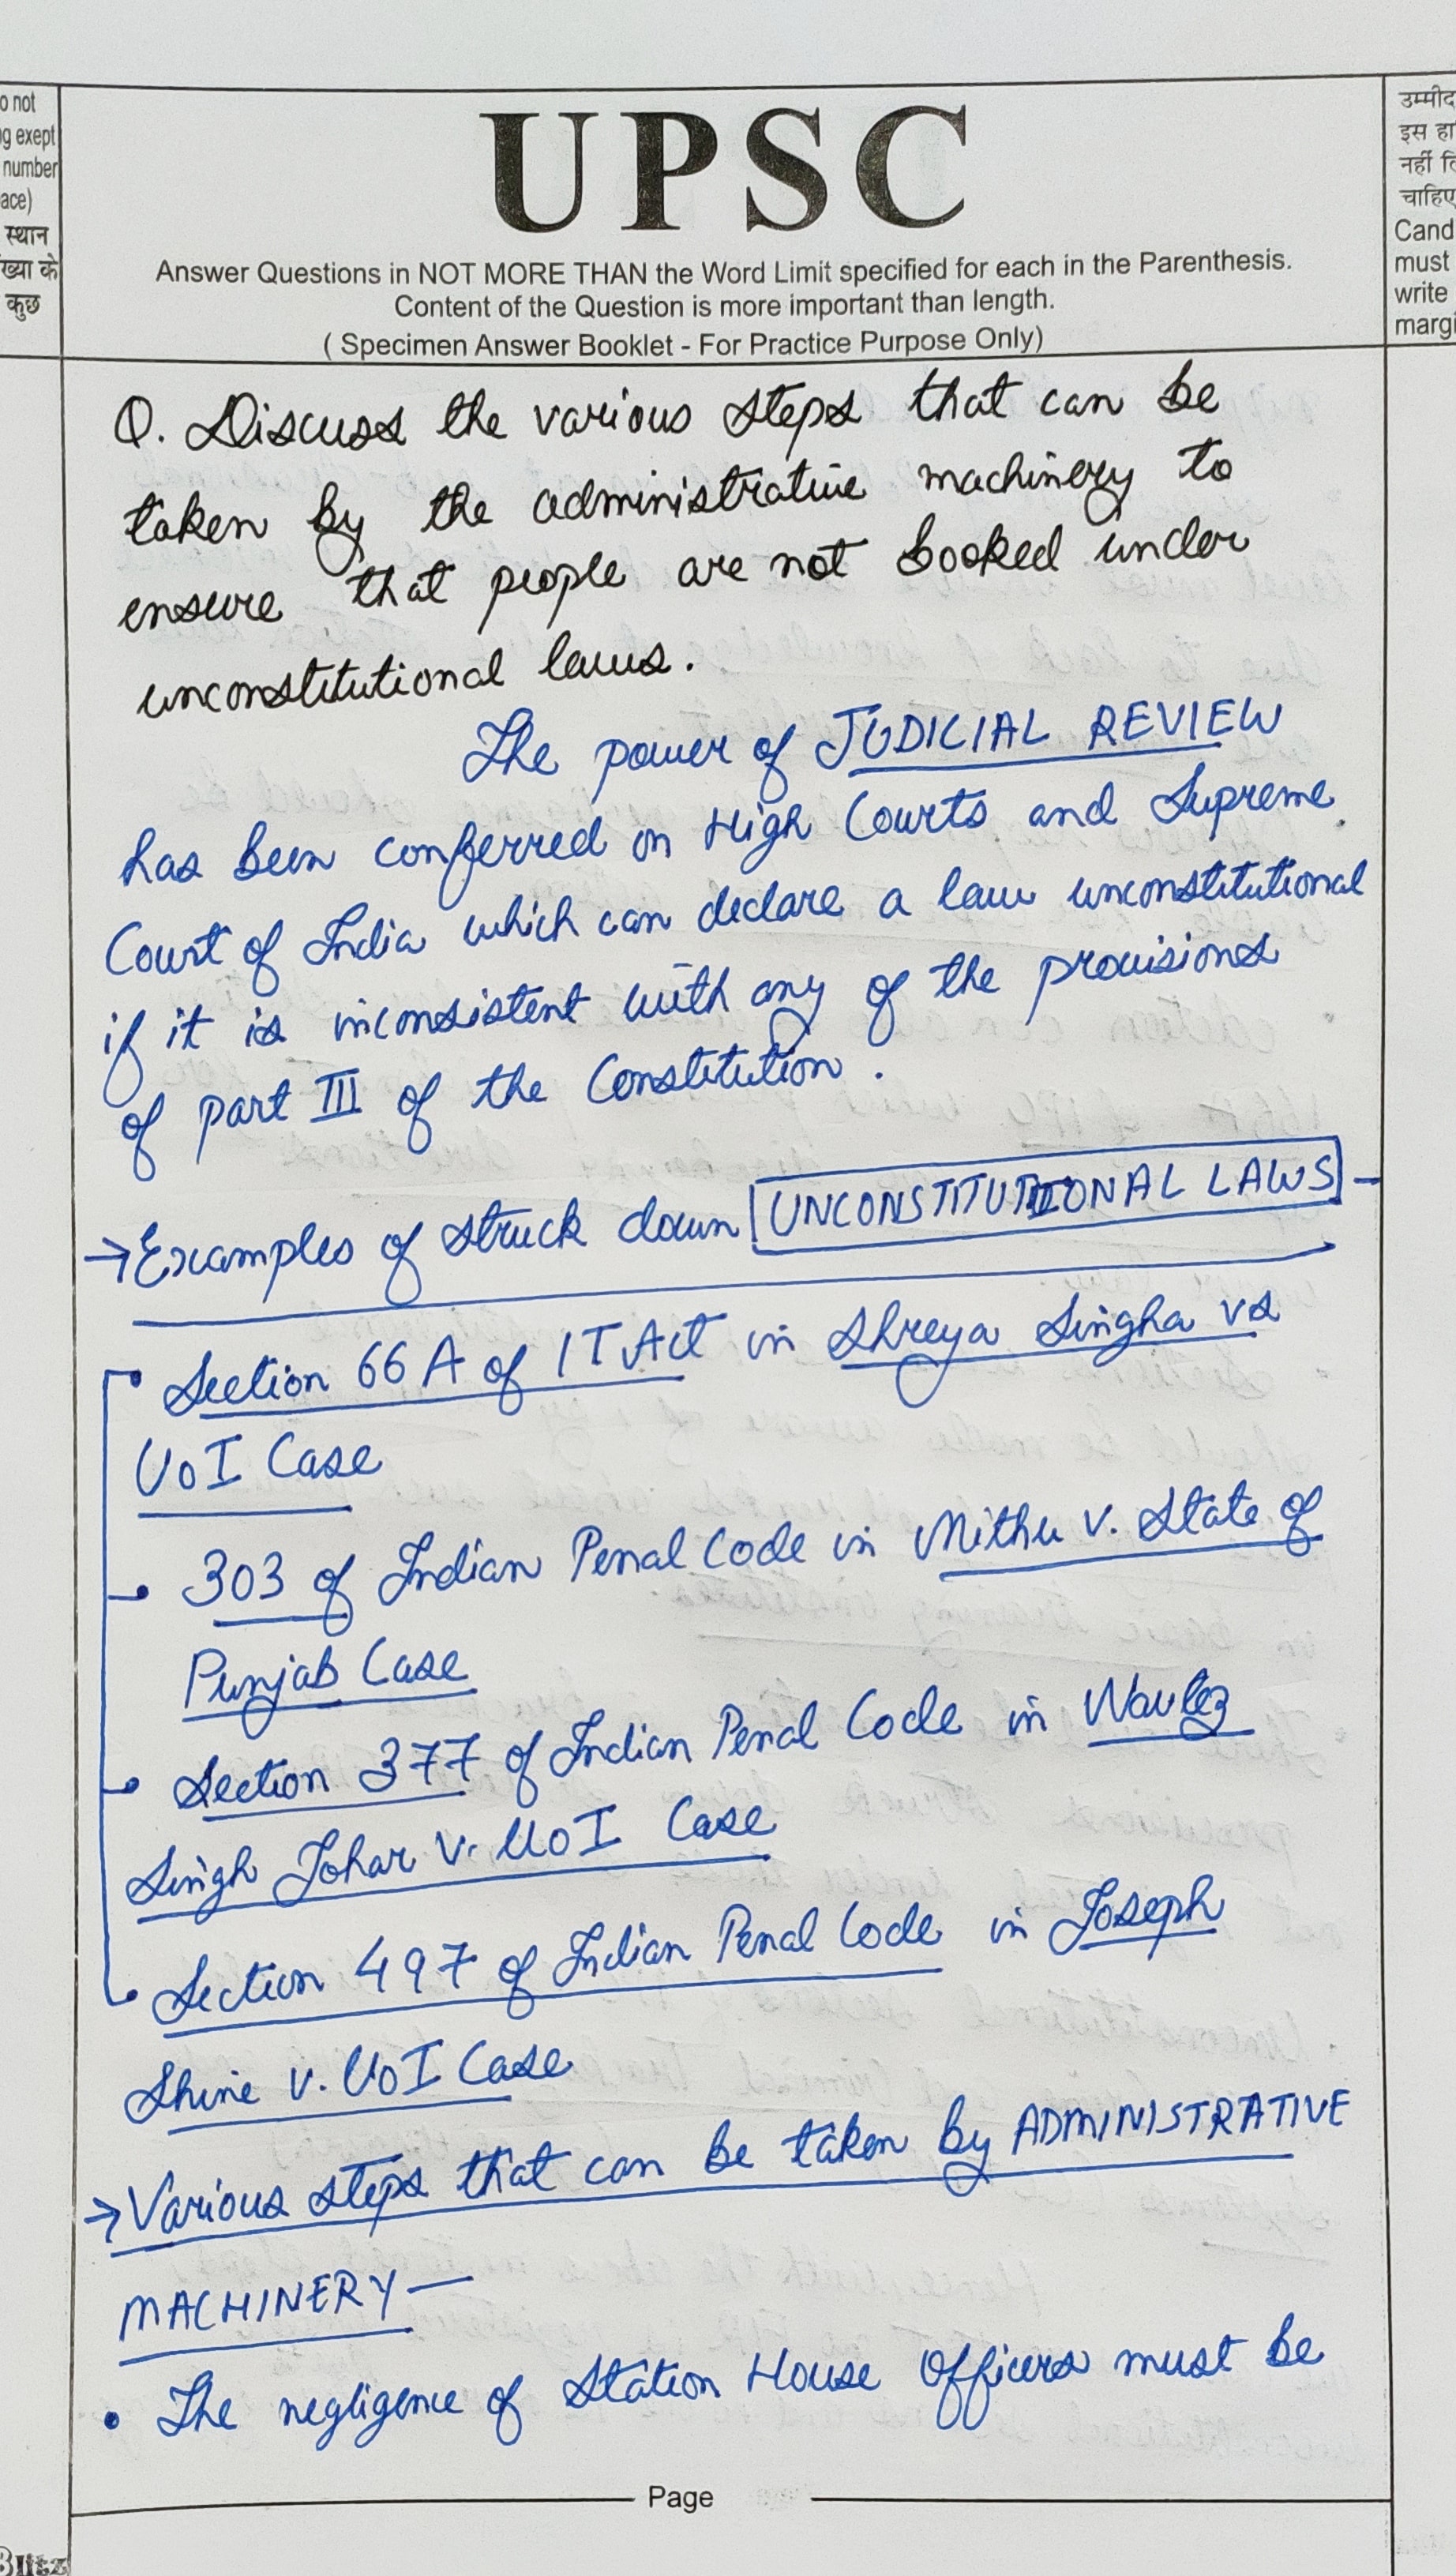 o not
g exept
number
ace)
स्थान
ख्या के
कुछ
UPSC
Answer Questions in NOT MORE THAN the Word Limit specified for each in the Parenthesis.
Content of the Question is more important than length.
( Specimen Answer Booklet - For Practice Purpose Only)
उम्मीद
इस हा
नहीं लि
चाहिए
Cand
must
write
margi
Q. Discuss the various steps that can be
taken by the administrative machinery to
ensure that people are not booked under
unconstitutional laws.
The power of JUDICIAL REVIEW
has been conferred on High Courts and Supreme
Court of India which can declare a law unconstitutional
if it is inconsistent with any of the provisions
of part III of the Constitution.
→ Examples of struck down UNCONSTITUTIONAL LAWS -
• Section 66A of IT Act in Shreya Singha vs
UoI Case
• 303 of Indian Penal Code in Mithu v. State of
Punjab Case
• Section 377 of Indian Penal Code in Navtez
Singh Johar v. UoI Case
• Section 497 of Indian Penal Code in Joseph
Shine v. UoI Case
→ Various steps that can be taken by ADMINISTRATIVE
MACHINERY —
• The negligence of Station House Officers must be
Page
Blitz